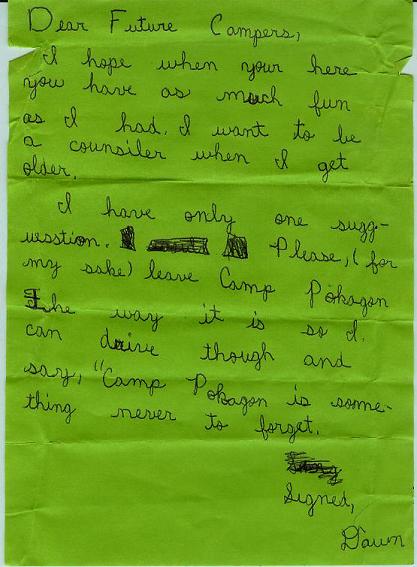 Dear Future Campers,
I hope when your here
you have as much fun
as I had. I want to be
a counsiler when I get
older.
I have only one sugg-
usstion. Please, (for
my sake) leave Camp Pokagon
the way it is so I
can drive though and
say, "Camp Pokagon is some-
thing never to forget.
Signed,
Dawn